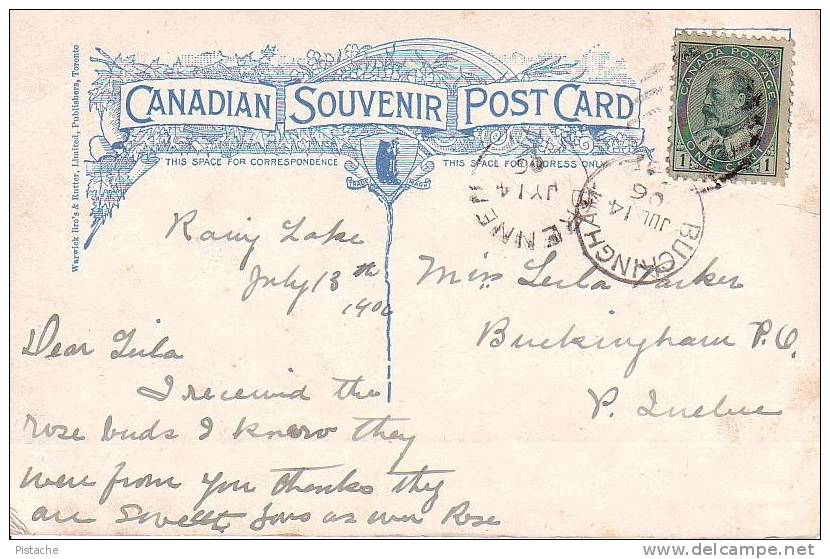 Warwick Bro's & Rutter, Limited, Publishers, Toronto
CANADIAN SOUVENIR POST CARD
THIS SPACE FOR CORRESPONDENCE
THIS SPACE FOR ADDRESS ONLY
TRADE MARK
CANADA POSTAGE
1 ONE CENT 1
JY 14
06
BUCKINGHAM
JUL 14
06
Rainy Lake
July 13th
1906
Miss Leila Parker
Buckingham P.Q.
P. Quebec
Dear Leila
I received the
rose buds I know they
were from you thanks they
are sweet as ever Rose
Pistache
www.delcampe.net